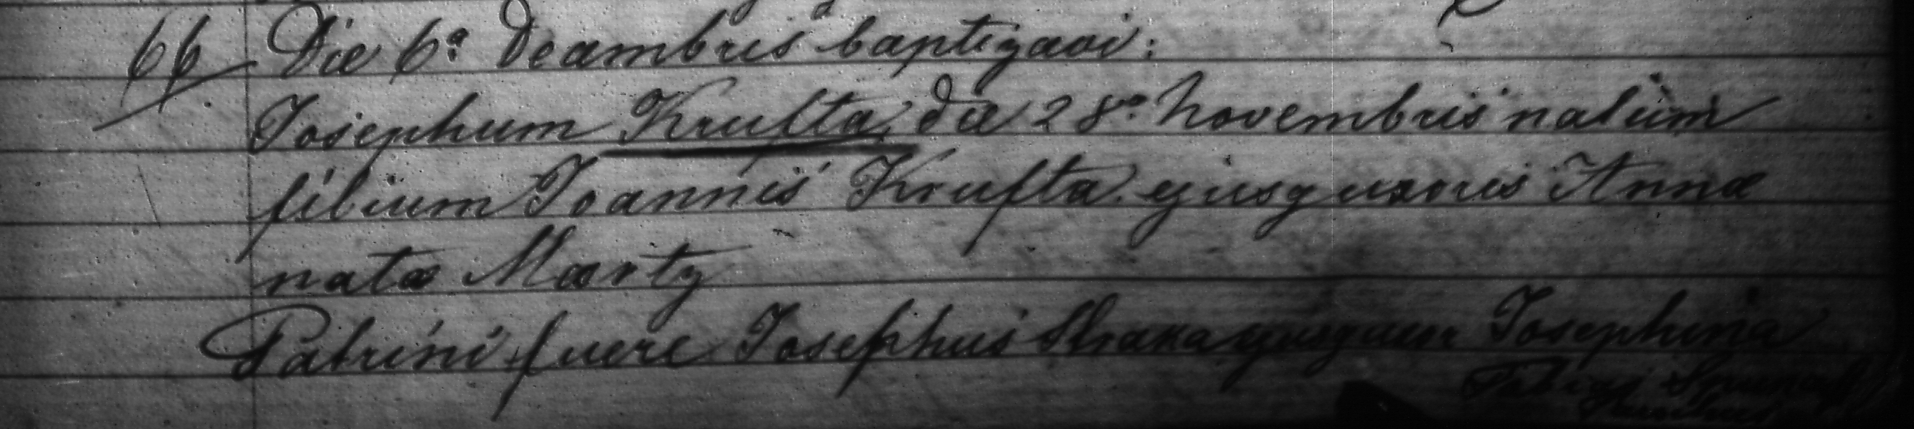 66 Die 6ª Decembris baptizavi:
Josephum Krufta, die 28ª Novembris natum
filium Joannis Krufta ejusq uxoris Annæ
natæ Marty
Patrini fuere Josephus Straka ejusq uxor Josephina